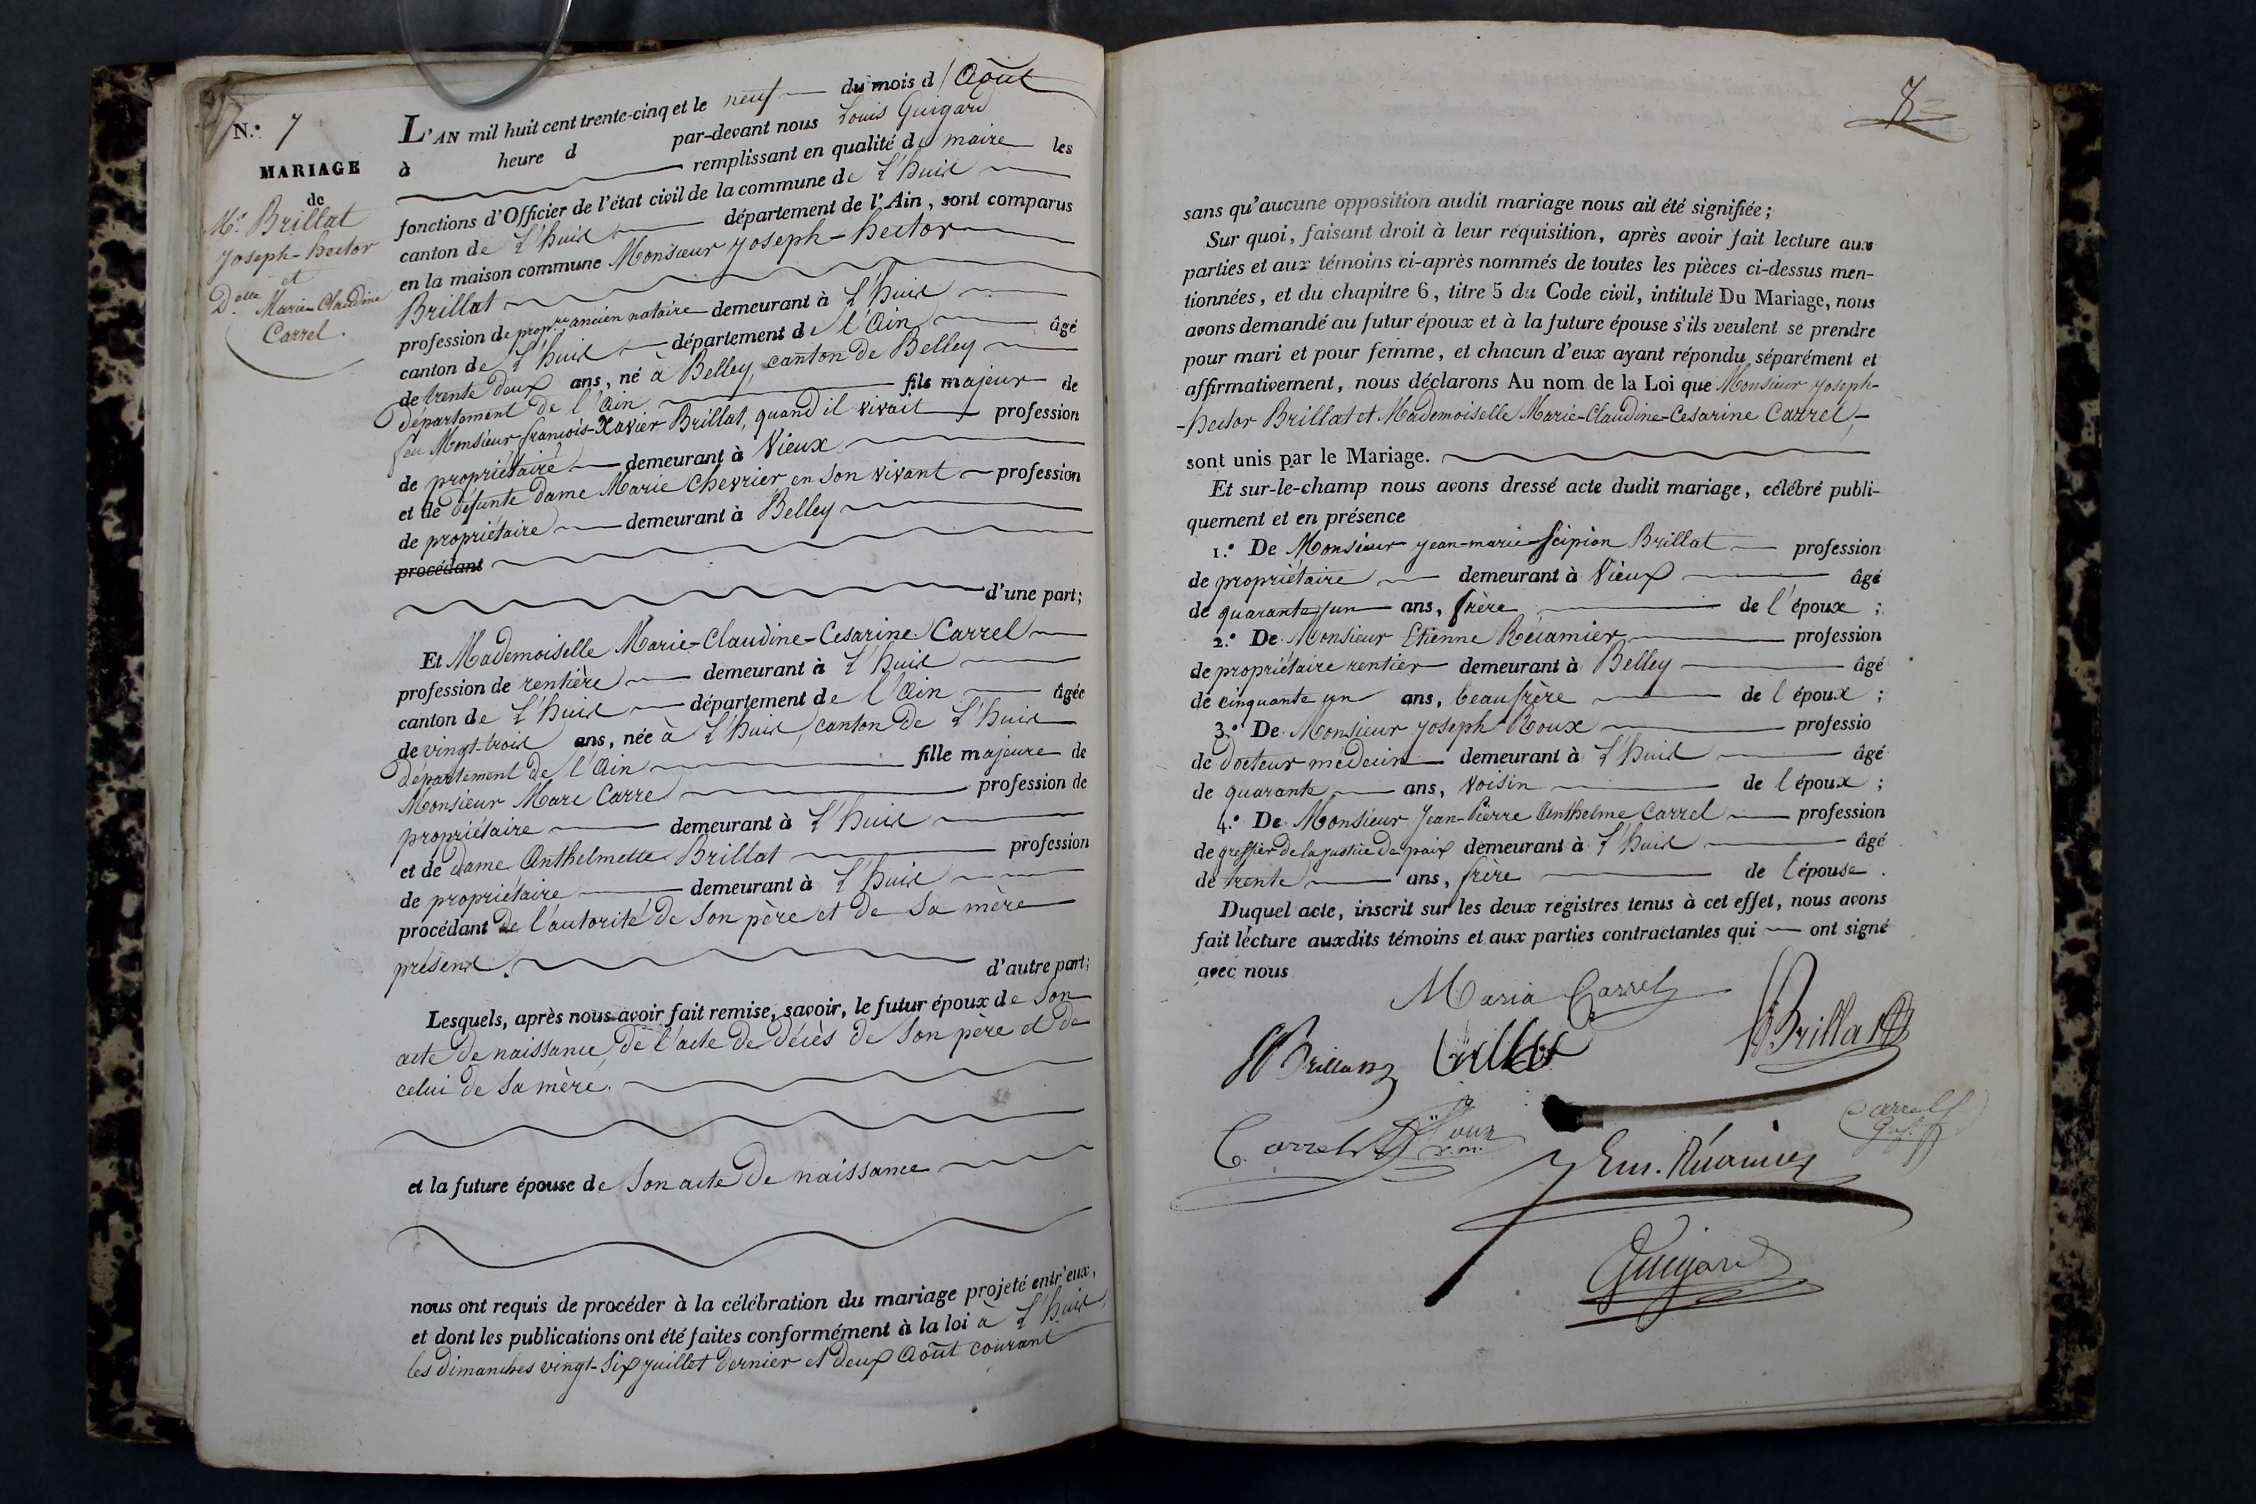 N.° 7
MARIAGE
de
Mr. Brillat
Joseph-hector
et
Delle. Marie-Claudine
Carrel.
L'AN mil huit cent trente-cinq et le neuf du mois d'Août
à heure d par-devant nous Louis Guigard
remplissant en qualité de maire les
fonctions d'Officier de l'état civil de la commune de L'huis
canton de L'huis département de l'Ain, sont comparus
en la maison commune Monsieur Joseph-hector
Brillat
profession de propre. ancien notaire demeurant à L'huis
canton de L'huis département de l'Ain âgé
de trente deux ans, né à Belley, canton de Belley
département de l'Ain fils majeur de
feu Monsieur françois-Xavier Brillat, quand il vivait profession
de propriétaire demeurant à Vieux
et de défunte dame Marie Chevrier en son vivant profession
de propriétaire demeurant à Belley
procédant
d'une part;
Et Mademoiselle Marie-Claudine-Cesarine Carrel
profession de rentière demeurant à L'huis
canton de L'huis département de l'Ain âgée
de vingt-trois ans, née à L'huis, canton de L'huis
département de l'Ain fille majeure de
Monsieur Marc Carrel profession de
propriétaire demeurant à L'huis
et de dame Anthelmette Brillat profession
de propriétaire demeurant à L'huis
procédant de l'autorité de son père et de sa mère
présens. d'autre part;
Lesquels, après nous avoir fait remise, savoir, le futur époux de son
acte de naissance, de l'acte de décès de son père et de
celui de sa mère.
et la future épouse de son acte de naissance
nous ont requis de procéder à la célébration du mariage projeté entr'eux,
et dont les publications ont été faites conformément à la loi à L'huis,
les dimanches vingt-six juillet dernier et deux Août courant
7
sans qu'aucune opposition audit mariage nous ait été signifiée;
Sur quoi, faisant droit à leur réquisition, après avoir fait lecture aux
parties et aux témoins ci-après nommés de toutes les pièces ci-dessus men-
tionnées, et du chapitre 6, titre 5 du Code civil, intitulé Du Mariage, nous
avons demandé au futur époux et à la future épouse s'ils veulent se prendre
pour mari et pour femme, et chacun d'eux ayant répondu séparément et
affirmativement, nous déclarons Au nom de la Loi que Monsieur Joseph-
-hector Brillat et Mademoiselle Marie-Claudine-Cesarine Carrel,
sont unis par le Mariage.
Et sur-le-champ nous avons dressé acte dudit mariage, célébré publi-
quement et en présence
1.° De Monsieur Jean-marie-Scipion Brillat profession
de propriétaire demeurant à Vieux âgé
de quarante un ans, frère de l'époux;
2.° De Monsieur Etienne Récamier profession
de propriétaire rentier demeurant à Belley âgé
de cinquante un ans, beaufrère de l'époux;
3.° De Monsieur Joseph Roux professio
de docteur médecin demeurant à L'huis âgé
de quarante ans, voisin de l'époux;
4.° De Monsieur Jean-Pierre Anthelme Carrel profession
de greffier de la justice de paix demeurant à L'huis âgé
de trente ans, frère de l'épouse.
Duquel acte, inscrit sur les deux registres tenus à cet effet, nous avons
fait lecture auxdits témoins et aux parties contractantes qui ont signé
avec nous
Maria Carrel
Brillat
Carrel
Roux
Carrel
Récamier
Guigard